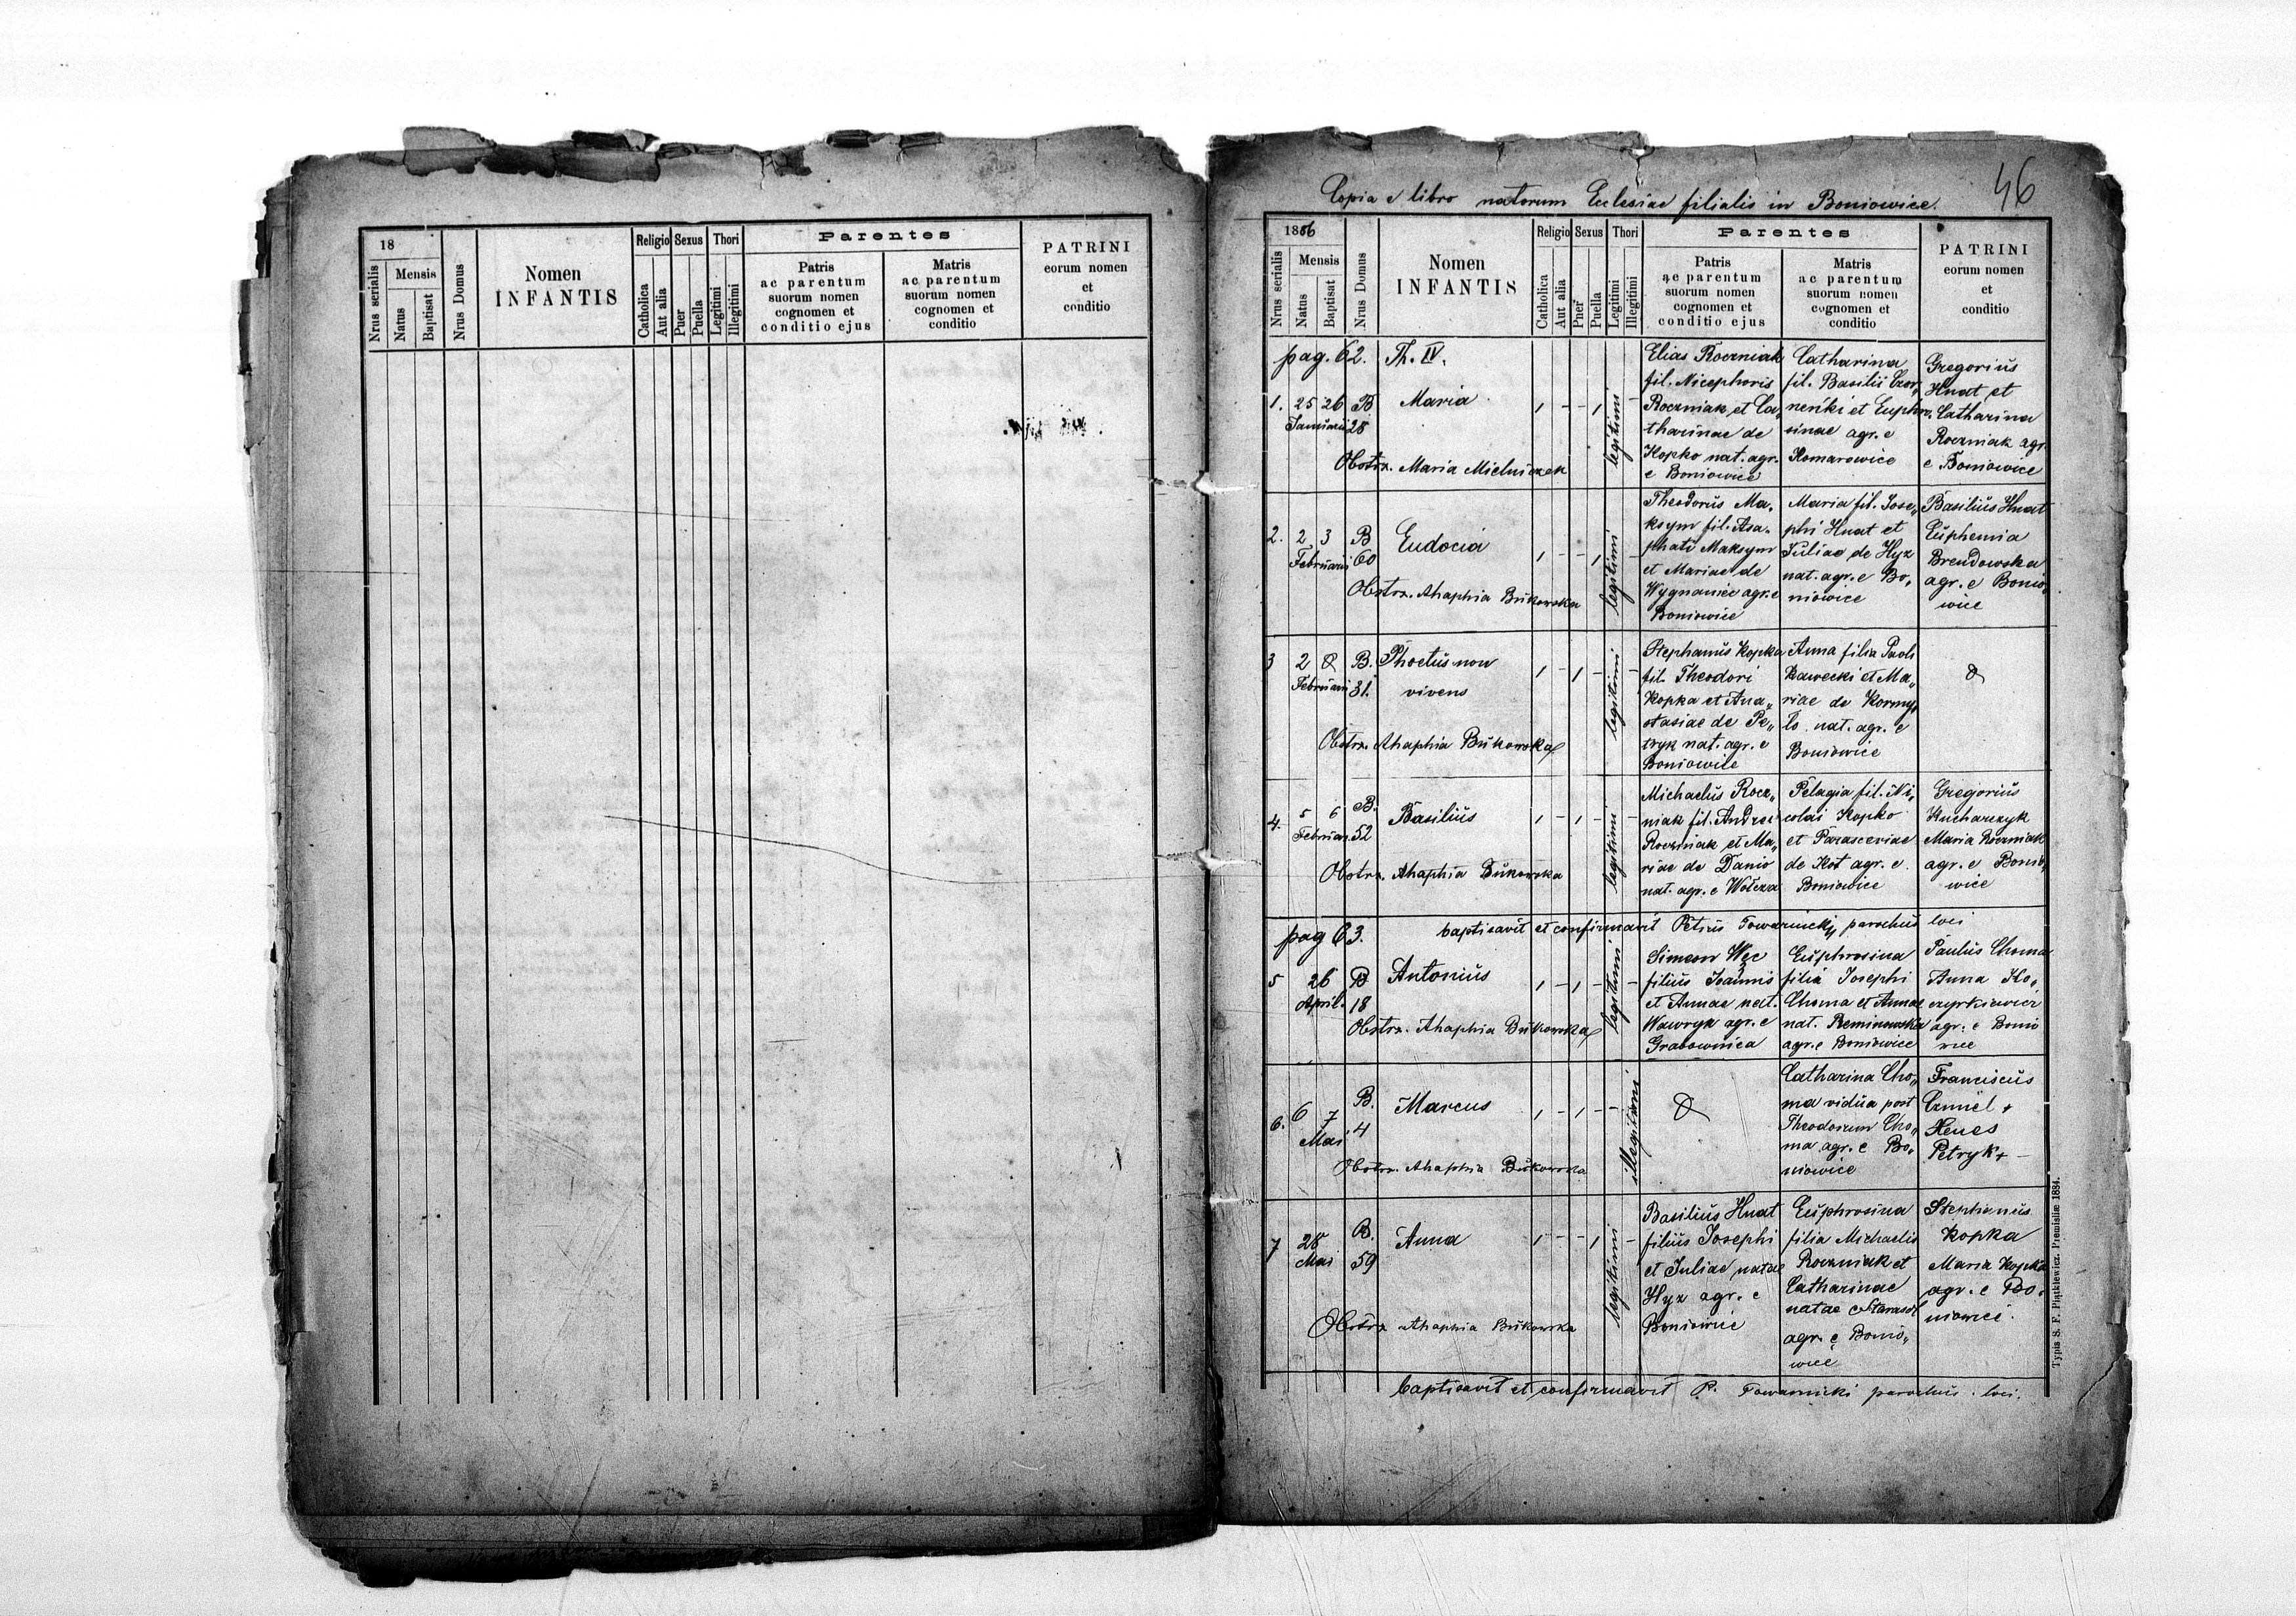 18
Nrus serialis
Mensis
Natus
Baptisat
Nrus Domus
Nomen
INFANTIS
Religio
Catholica
Aut alia
Sexus
Puer
Puella
Thori
Legitimi
Illegitimi
Parentes
Patris
ac parentum
suorum nomen
cognomen et
conditio ejus
Matris
ac parentum
suorum nomen
cognomen et
conditio
PATRINI
eorum nomen
et
conditio
46
Copia e libro natorum Ecclesiae filialis in Boniowice.
1886
Nrus serialis
Mensis
Natus
Baptisat
Nrus Domus
Nomen
INFANTIS
Religio
Catholica
Aut alia
Sexus
Puer
Puella
Thori
Legitimi
Illegitimi
Parentes
Patris
ac parentum
suorum nomen
cognomen et
conditio ejus
Matris
ac parentum
suorum nomen
cognomen et
conditio
PATRINI
eorum nomen
et
conditio
pag. 62. Th. IV.
1. 25 26 B Maria
Januarii 28
Obstr. Maria Mielniczek
legitimi
Elias Roczniak
fil. Nicephoris
Roczniak et Ca„
tharinae de
Kopko nat. agr.
e Boniowice
Catharina
fil. Basilii Czor„
neńki et Euphro„
sinae agr. e
Komarowice
Gregorius
Hnat et
Catharina
Roczniak agr.
e Boniowice
2. 2 3 B Eudocia
Februarii 60
Obstr. Ahaphia Bukowska
legitimi
Theodorus Ma„
ksym fil. Asa„
phati Maksym
et Mariae de
Wygnaniec agr. e
Boniowice
Maria fil. Jose„
phi Hnat et
Juliae de Hyz
nat. agr. e Bo„
niowice
Basilius Hnat
Euphemia
Brendowska
agr. e Bonio„
wice
3 2 B. Phoetus non
Februarii 31. vivens
Obstr. Ahaphia Bukowska
legitimi
Stephanus Kopka
fil. Theodori
Kopka et Ana„
stasiae de Pe„
tryk nat. agr. e
Boniowice
Anna filia Pauli
Rawecki et Ma„
riae de Kormy„
lo nat. agr. e
Boniowice
4. 5 6 B. Basilius
Februar. 52
Obstr. Ahaphia Bukowska
legitimi
Michaelus Rocz„
niak fil. Andrei
Roczniak et Ma„
riae de Danio
nat. agr. e Wolcza
Pelagia fil. Ni„
colai Kopko
et Parasceviae
de Kot agr. e
Boniowice
Gregorius
Kucharzyk
Maria Roczniak
agr. e Bonio„
wice
pag 63. baptisavit et confirmavit Petrus Towarnicki parochus loci
5 26 B Antonius
April. 18
Obstr. Ahaphia Bukowska
legitimi
Simeon Węc
filius Joannis
et Annae nat.
Wawryk agr. e
Grabownica
Euphrosina
filia Josephi
Choma et Annae
nat. Reminowska
agr. e Boniowice
Paulus Choma
Anna Ko„
czyrkiewicz
agr. e Bonio
wice
6. 6 7 B. Marcus
Mai 4
Obstr. Ahaphia Bukowska
illegitimi
Catharina Cho„
ma vidua post
Theodorum Cho„
ma agr. e Bo„
niowice
Franciscus
Czmiel +
Xenes
Petryk +
7 28 B. Anna
Mai 59
Obstr Ahaphia Bukowska
legitimi
Basilius Hnat
filius Josephi
et Juliae natae
Hyz agr. e
Boniowice
Euphrosina
filia Michaelis
Roczniak et
Catharinae
natae Starasol
agr. e Bonio„
wice
Stephanus
Kopka
Maria Kopka
agr. e Bo„
niowice.
baptisavit et confirmavit P. Towarnicki parochus loci.
Typis S. F. Piątkiewicz. Premisliæ 1884.